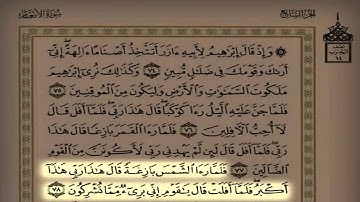 الجزء السابع
سورة الأنعام
۞ وَإِذْ قَالَ إِبْرَٰهِيمُ لِأَبِيهِ ءَازَرَ أَتَتَّخِذُ أَصْنَامًا ءَالِهَةً إِنِّىٓ
أَرَىٰكَ وَقَوْمَكَ فِى ضَلَٰلٍ مُّبِينٍ ٧٤ وَكَذَٰلِكَ نُرِىٓ إِبْرَٰهِيمَ
مَلَكُوتَ ٱلسَّمَٰوَٰتِ وَٱلْأَرْضِ وَلِيَكُونَ مِنَ ٱلْمُوقِنِينَ ٧٥
فَلَمَّا جَنَّ عَلَيْهِ ٱلَّيْلُ رَءَا كَوْكَبًا قَالَ هَٰذَا رَبِّى فَلَمَّآ أَفَلَ قَالَ
لَآ أُحِبُّ ٱلْءَافِلِينَ ٧٦ فَلَمَّا رَءَا ٱلْقَمَرَ بَازِغًا قَالَ هَٰذَا
رَبِّى فَلَمَّآ أَفَلَ قَالَ لَئِن لَّمْ يَهْدِنِى رَبِّى لَأَكُونَنَّ مِنَ ٱلْقَوْمِ
ٱلضَّآلِّينَ ٧٧ فَلَمَّا رَءَا ٱلشَّمْسَ بَازِغَةً قَالَ هَٰذَا رَبِّى هَٰذَآ
أَكْبَرُ فَلَمَّآ أَفَلَتْ قَالَ يَٰقَوْمِ إِنِّى بَرِىٓءٌ مِّمَّا تُشْرِكُونَ ٧٨
الحزب
١٤